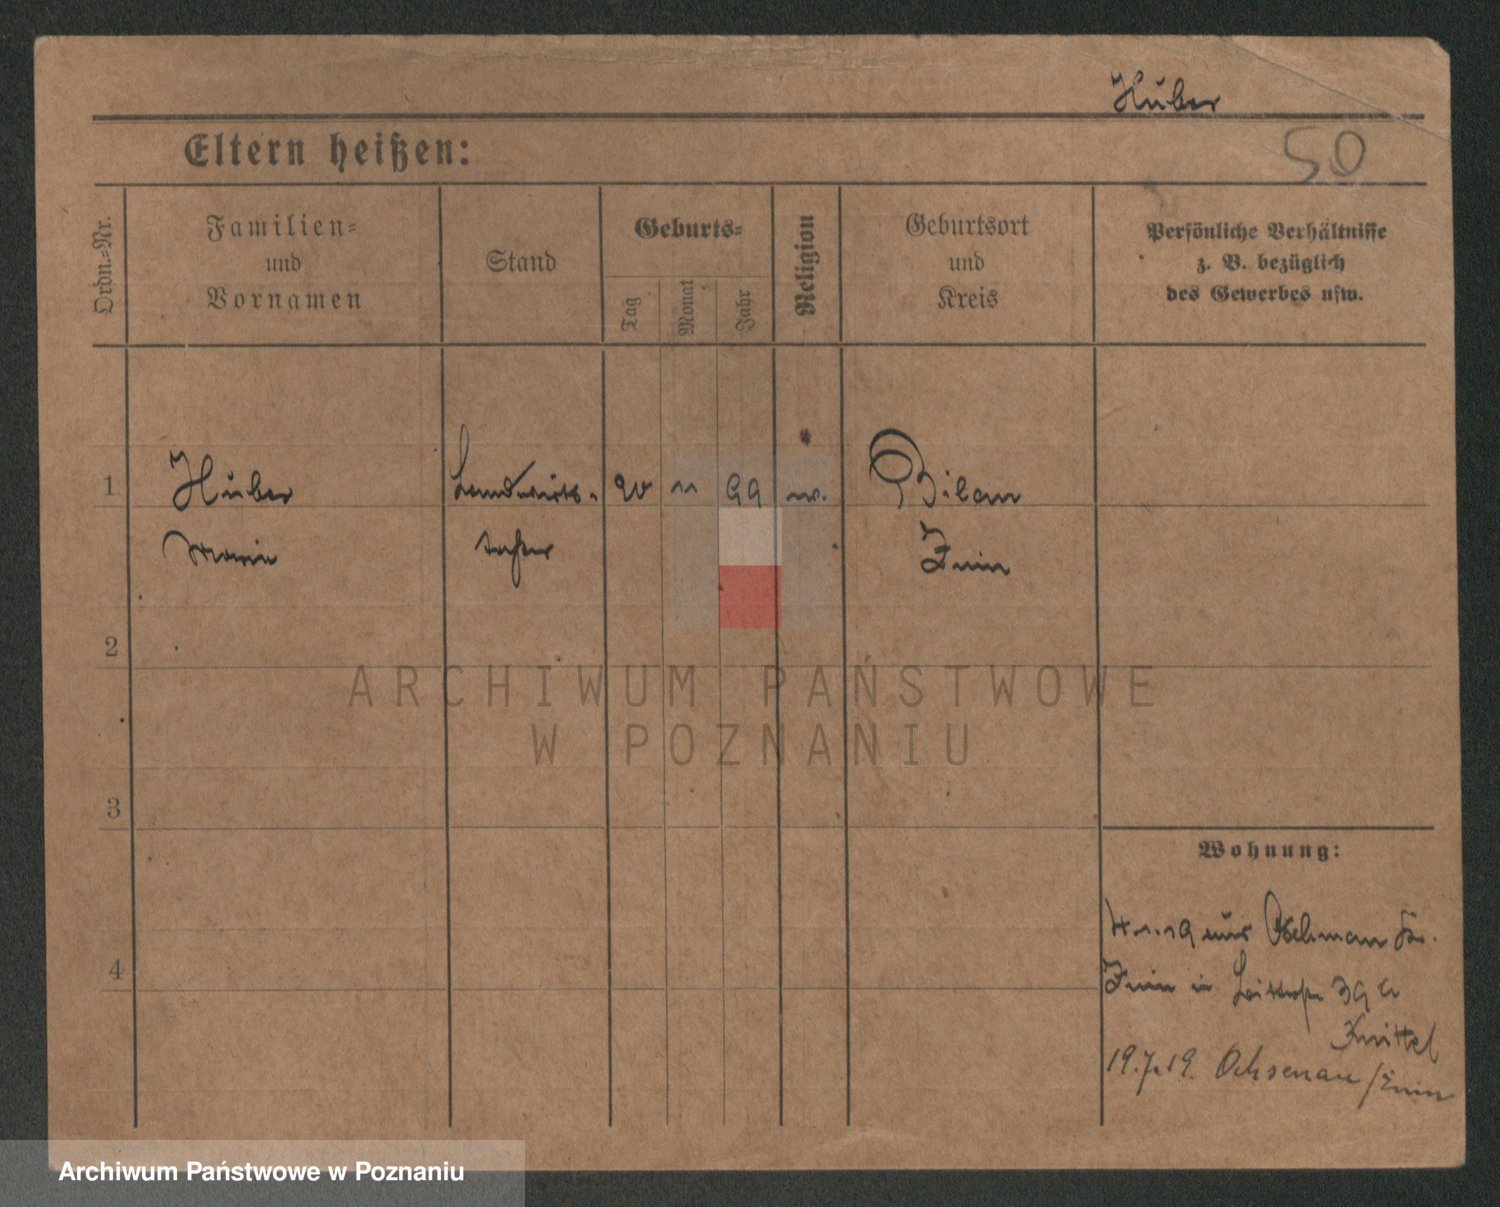 Huber
Eltern heißen:
50
Ordn.=Nr.
Familien=
und
Vornamen
Stand
Geburts=
Tag
Monat
Jahr
Religion
Geburtsort
und
Kreis
Persönliche Verhältnisse
z. B. bezüglich
des Gewerbes usw.
1
Huber
Landwirts-
20
11
99
Bilau
Marie
tochter
Znin
2
ARCHIWUM PAŃSTWOWE
W POZNANIU
3
Wohnung:
19 aus
4
Znin in 39 a
Knittel
19.7.19. Ochsenau/Znin
Archiwum Państwowe w Poznaniu